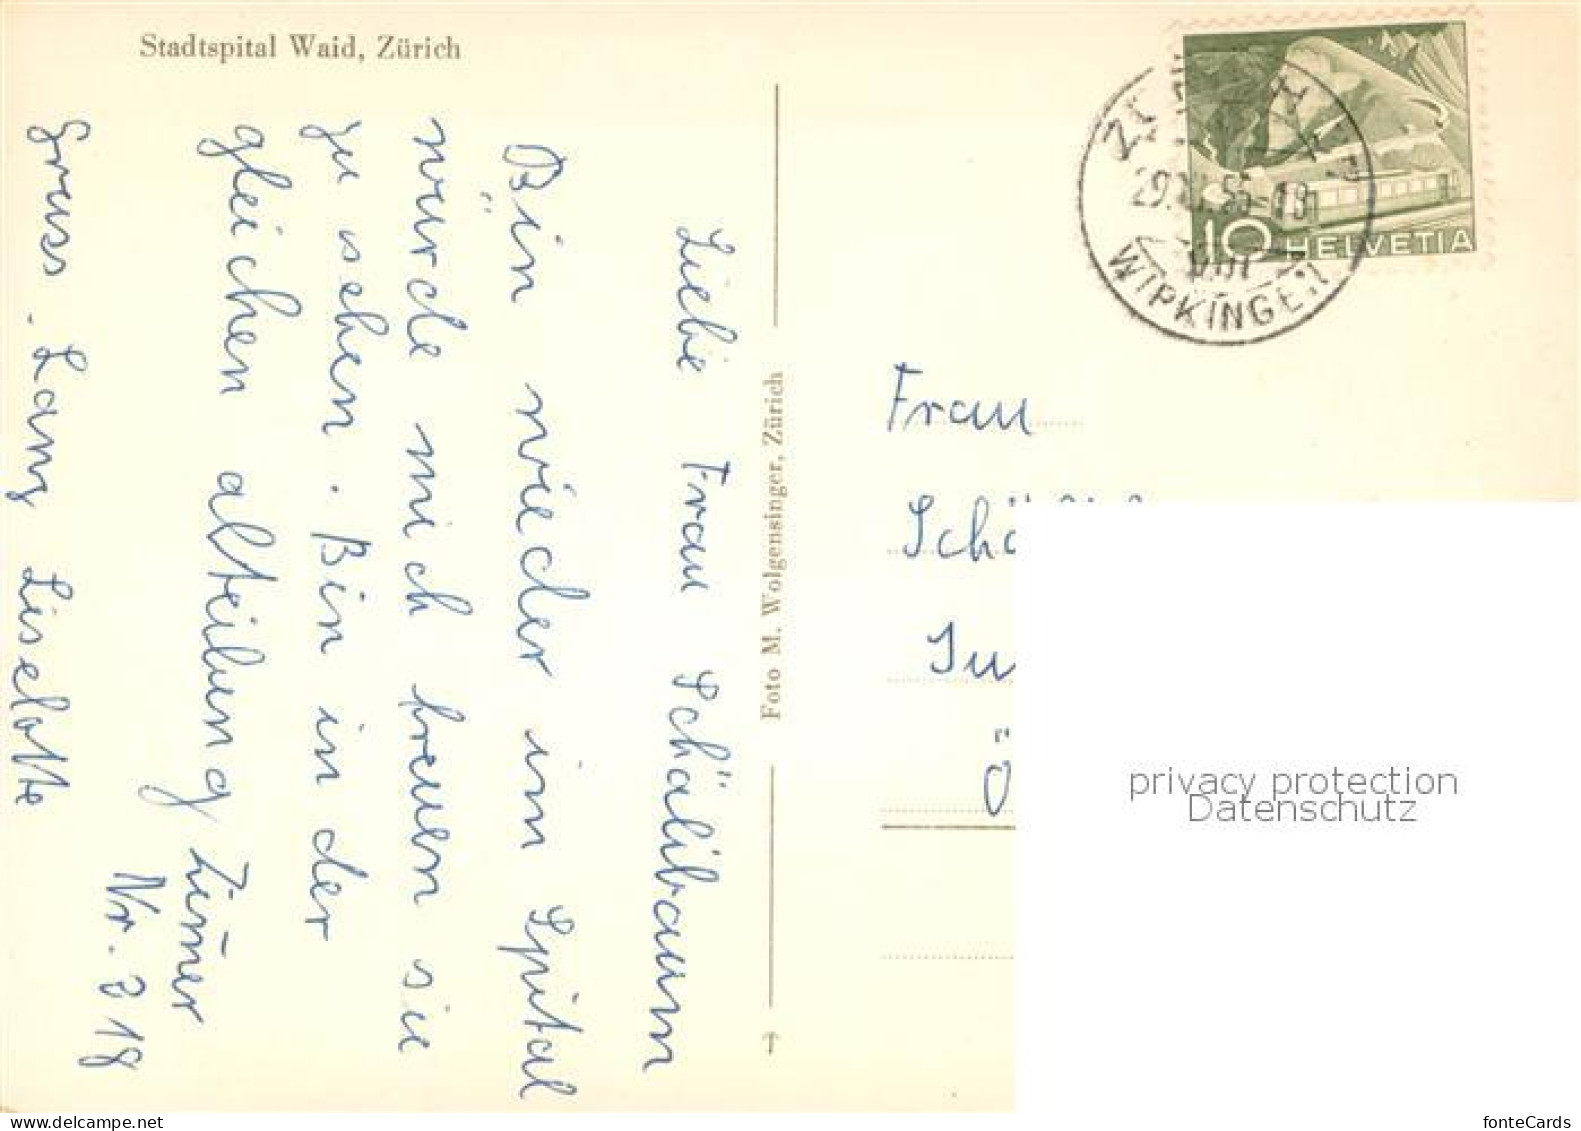 Stadtspital Waid, Zürich
Liebe Frau Schälibaum
Bin wieder im Spital
wurde mich freuen sie
zu sehen. Bin in der
gleichen abteilung Zimer
Nr. 318
Gruss. Lang Liselotte
Foto M. Wolgensinger, Zürich
WIPKINGEN
10 HELVETIA
Frau
privacy protection
Datenschutz
fonteCards